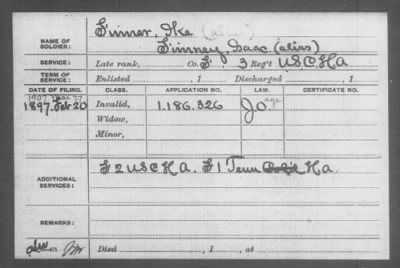 NAME OF SOLDIER: Simner, Ike (alias)
Simney, Isaac (alias)
SERVICE: Late rank, Co. E, 3 Reg't U.S.C.H.A
TERM OF SERVICE: Enlisted , 1 Discharged , 1
DATE OF FILING. CLASS. APPLICATION NO. LAW. CERTIFICATE NO.
1897. Feb 20 Invalid, 1.186.326
Widow,
Minor,
ADDITIONAL SERVICES: E 2 U.S.C.H.A. E 1 Tenn H.A.
REMARKS:
Died , 1 , at